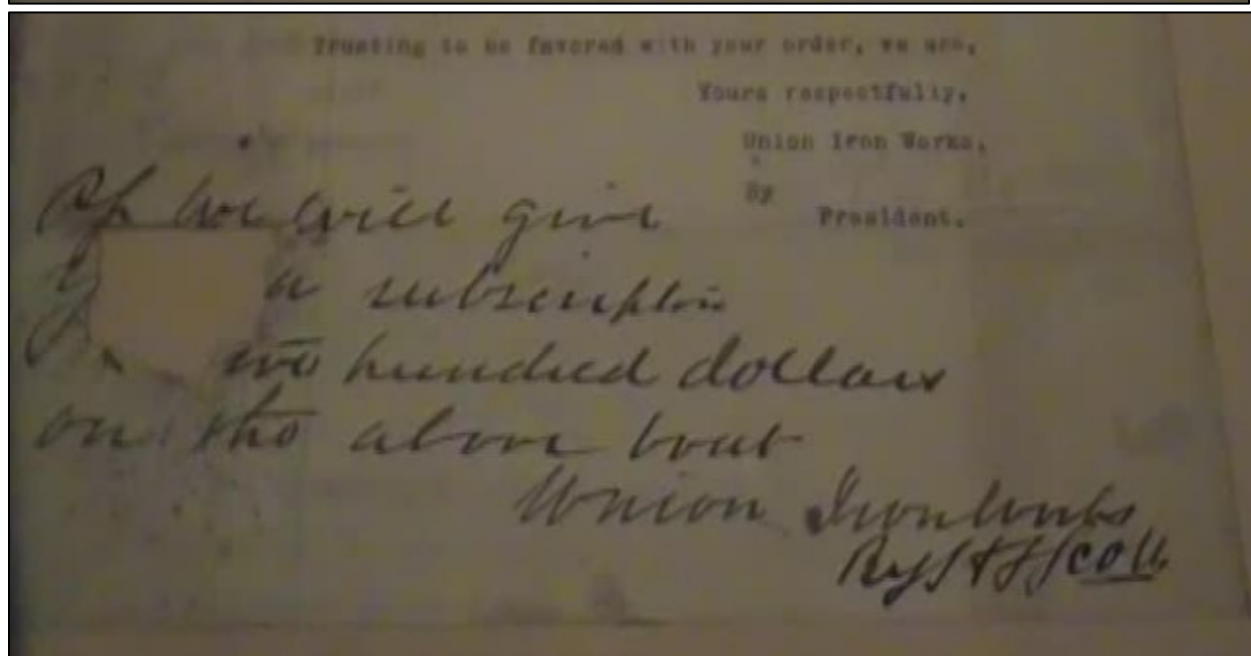 Trusting to be favored with your order, we are,
Yours respectfully,
Union Iron Works,
By
President.
we will give
a subscription
two hundred dollars
on the above boat
Union Iron Works
By Scott